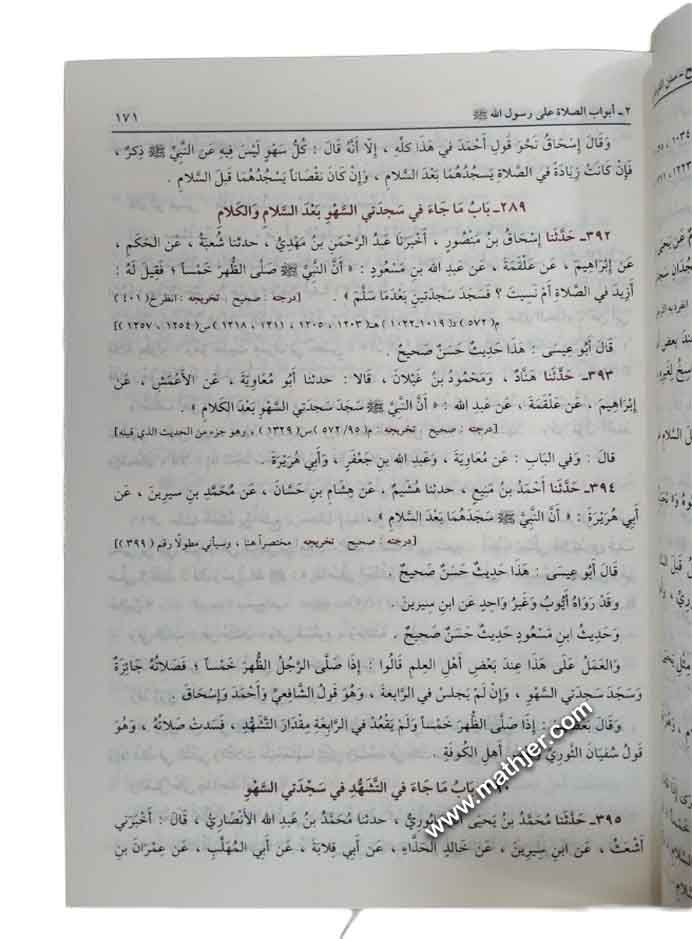 ٢ ـ أبواب الصلاة على رسول الله ﷺ
١٧١
وَقَالَ إِسْحَاقُ نَحْوَ قَولِ أَحْمَدَ في هَذَا كلِّهِ ، إلَّا أَنَّهُ قَالَ : كُلُّ سَهْوٍ لَيْسَ فِيهِ عَن النَّبِيِّ ﷺ ذِكرٌ ،
فَإِنْ كَانَتْ زِيَادَةً في الصَّلاةِ يَسجُدُهُمَا بَعْدَ السَّلَامِ ، وَإِنْ كَانَ نُقْصَاناً يَسْجُدُهُمَا قَبلَ السَّلَامِ .
٢٨٩ـ بَابُ مَا جَاءَ في سَجدَتي السَّهْوِ بَعْدَ السَّلَامِ وَالكَلَامِ
٣٩٢ـ حَدَّثَنَا إِسْحَاقُ بنُ مَنصُورٍ ، أَخْبَرَنَا عَبدُ الرَّحْمنِ بنُ مَهْدِيٍّ ، حدثنا شُعبَةُ ، عَن الحَكَمِ ،
عَن إِبْرَاهِيمَ ، عَن عَلْقَمَةَ ، عَن عَبدِ الله بنِ مَسْعُودٍ : « أَنَّ النَّبِيَّ ﷺ صَلَّى الظُّهرَ خَمْساً ؛ فَقِيلَ لَهُ :
أَزِيدَ في الصَّلَاةِ أَمْ نَسِيتَ ؟ فَسَجَدَ سَجدَتَينِ بَعْدَمَا سَلَّمَ » . [درجته : صحيح . تخريجه : انظر خ (٤٠١)
م(٥٧٢) د(١٠١٩ـ١٠٢٢) هـ(١٢٠٣ ، ١٢٠٥ ، ١٢١١ ، ١٢١٨) س(١٢٥٤ ، ١٢٥٧)]
قَالَ أَبُو عِيسَى : هَذَا حَدِيثٌ حَسَنٌ صَحِيحٌ .
٣٩٣ـ حَدَّثَنَا هَنَّادٌ ، وَمَحْمُودُ بنُ غَيْلَانَ ، قَالَا : حدثنا أَبُو مُعَاوِيَةَ ، عَن الأَعْمَشِ ، عَن
إِبْرَاهِيمَ ، عَن عَلْقَمَةَ ، عَن عَبدِ الله : « أَنَّ النَّبِيَّ ﷺ سَجَدَ سَجدَتَي السَّهْوِ بَعْدَ الكَلَامِ » .
[درجته : صحيح . تخريجه : م(٥٧٢/٩٥) س(١٣٢٩) ، وهو جزء من الحديث الذي قبله]
قَالَ : وَفي البَابِ : عَن مُعَاوِيَةَ ، وَعَبدِ الله بنِ جَعْفَرٍ ، وَأَبي هُرَيْرَةَ .
٣٩٤ـ حَدَّثَنَا أَحْمَدُ بنُ مَنِيعٍ ، حدثنا هُشَيْمٌ ، عَن هِشَامِ بنِ حَسَّانَ ، عَن مُحَمَّدِ بنِ سِيرِينَ ، عَن
أَبي هُرَيْرَةَ : « أَنَّ النَّبِيَّ ﷺ سَجَدَهُمَا بَعْدَ السَّلَامِ » .
[درجته : صحيح . تخريجه : مختصراً هنا ، وسيأتي مطولًا رقم (٣٩٩)]
قَالَ أَبُو عِيسَى : هَذَا حَدِيثٌ حَسَنٌ صَحِيحٌ .
وَقَد رَوَاهُ أَيُّوبُ وَغَيرُ وَاحِدٍ عَن ابنِ سِيرِينَ .
وَحَدِيثُ ابنِ مَسْعُودٍ حَدِيثٌ حَسَنٌ صَحِيحٌ .
وَالعَمَلُ عَلَى هَذَا عِندَ بَعْضِ أَهْلِ العِلمِ قَالُوا : إِذَا صَلَّى الرَّجُلُ الظُّهرَ خَمْساً ؛ فَصَلَاتُهُ جَائِزَةٌ
وَسَجَدَ سَجدَتَي السَّهْوِ ، وَإِنْ لَمْ يَجلِسْ في الرَّابِعَةِ ، وَهُوَ قَولُ الشَّافِعِيِّ وَأَحْمَدَ وَإِسْحَاقَ .
وَقَالَ بَعْضُهُمْ : إِذَا صَلَّى الظُّهرَ خَمْساً وَلَمْ يَقْعُدْ في الرَّابِعَةِ مِقْدَارَ التَّشَهُّدِ ، فَسَدتْ صَلَاتُهُ ، وَهُوَ
قَولُ سُفيَانَ الثَّورِيِّ وَ أَهلِ الكُوفَةِ .
بَابُ مَا جَاءَ في التَّشَهُّدِ في سَجْدَتَي السَّهْوِ
٣٩٥ـ حَدَّثَنَا مُحَمَّدُ بنُ يَحيَى ، حدثنا مُحَمَّدُ بنُ عَبدِ الله الأَنْصَارِيُّ ، قَالَ : أَخْبَرَني
أَشْعَثُ ، عَن ابنِ سِيرِينَ ، عَن خَالِدٍ الحَذَّاءِ ، عَن أَبي قِلَابَةَ ، عَن أَبي المُهَلَّبِ ، عَن عِمْرَانَ بنِ
www.mathjer.com